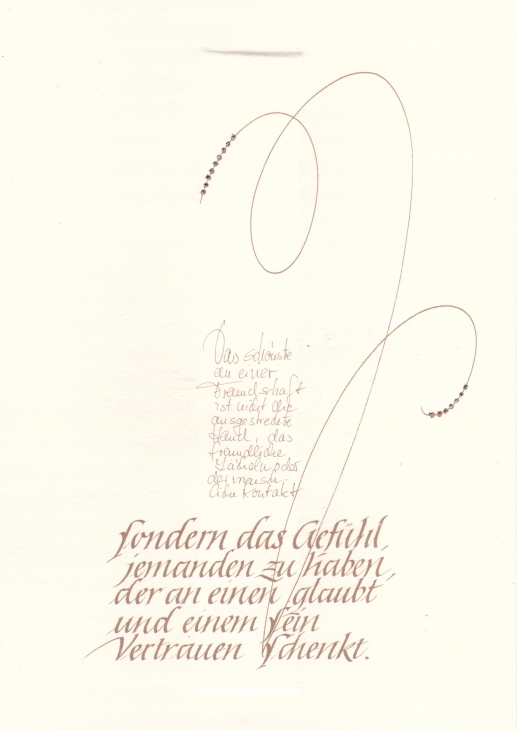 Das schönste
an einer
Freundschaft
ist nicht die
ausgestreckte
Hand, das
freundliche
Lächeln oder
der mensch-
liche Kontakt
sondern das Gefühl,
jemanden zu haben,
der an einen glaubt
und einem sein
Vertrauen schenkt.